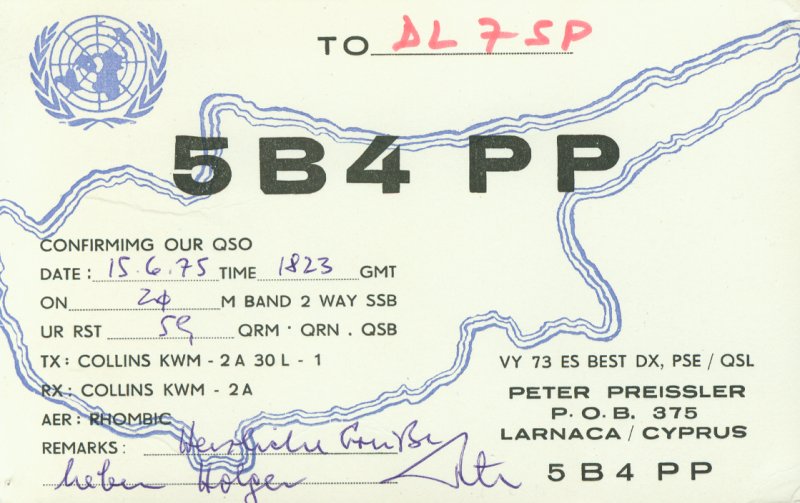 TO DL7SP
5B4 PP
CONFIRMIMG OUR QSO
DATE : 15.6.75 TIME 1823 GMT
ON 20 M BAND 2 WAY SSB
UR RST 59 QRM · QRN . QSB
TX : COLLINS KWM - 2A 30 L - 1
RX : COLLINS KWM - 2A
AER : RHOMBIC
REMARKS : Herzliche Grüße
lieber Holger Peter
VY 73 ES BEST DX, PSE / QSL
PETER PREISSLER
P. O. B. 375
LARNACA / CYPRUS
5B4 PP